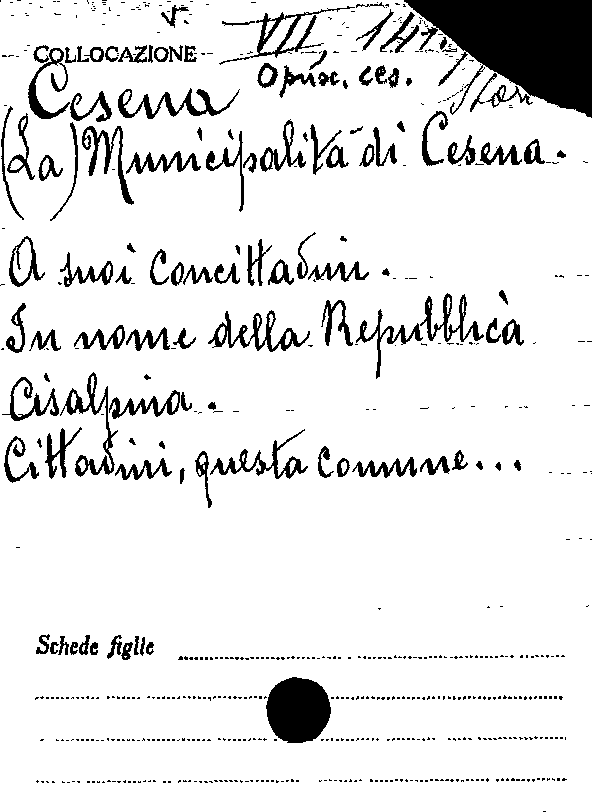 v.
COLLOCAZIONE VII, 141.
Opusc. ces.
Cesena
(La) Municipalità di Cesena.
A suoi concittadini.
In nome della Repubblica
Cisalpina.
Cittadini, questa comune...
Schede figlie